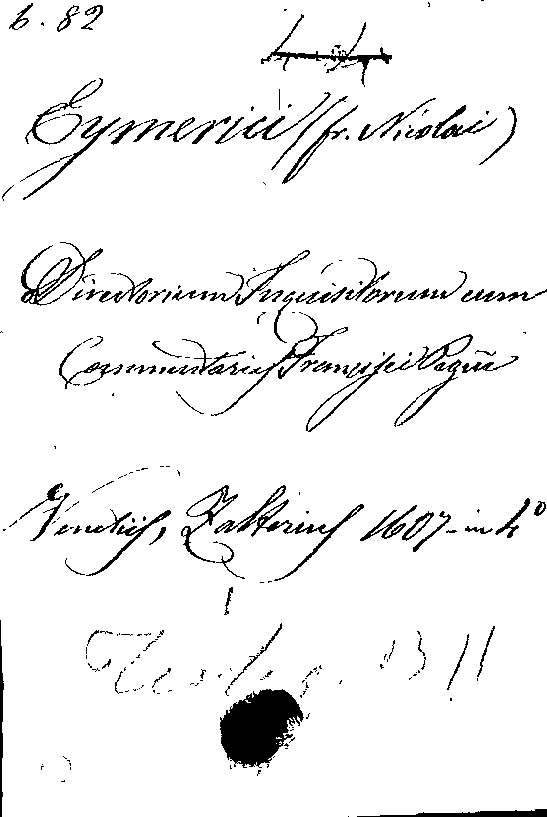 6. 82
Eymerici (fr. Nicolai)
Directorium Inquisitorum cum
Commentariis Francisci Pegñi
Venetiis, Zalterius 1607 - in 4º
Teolog. 1311